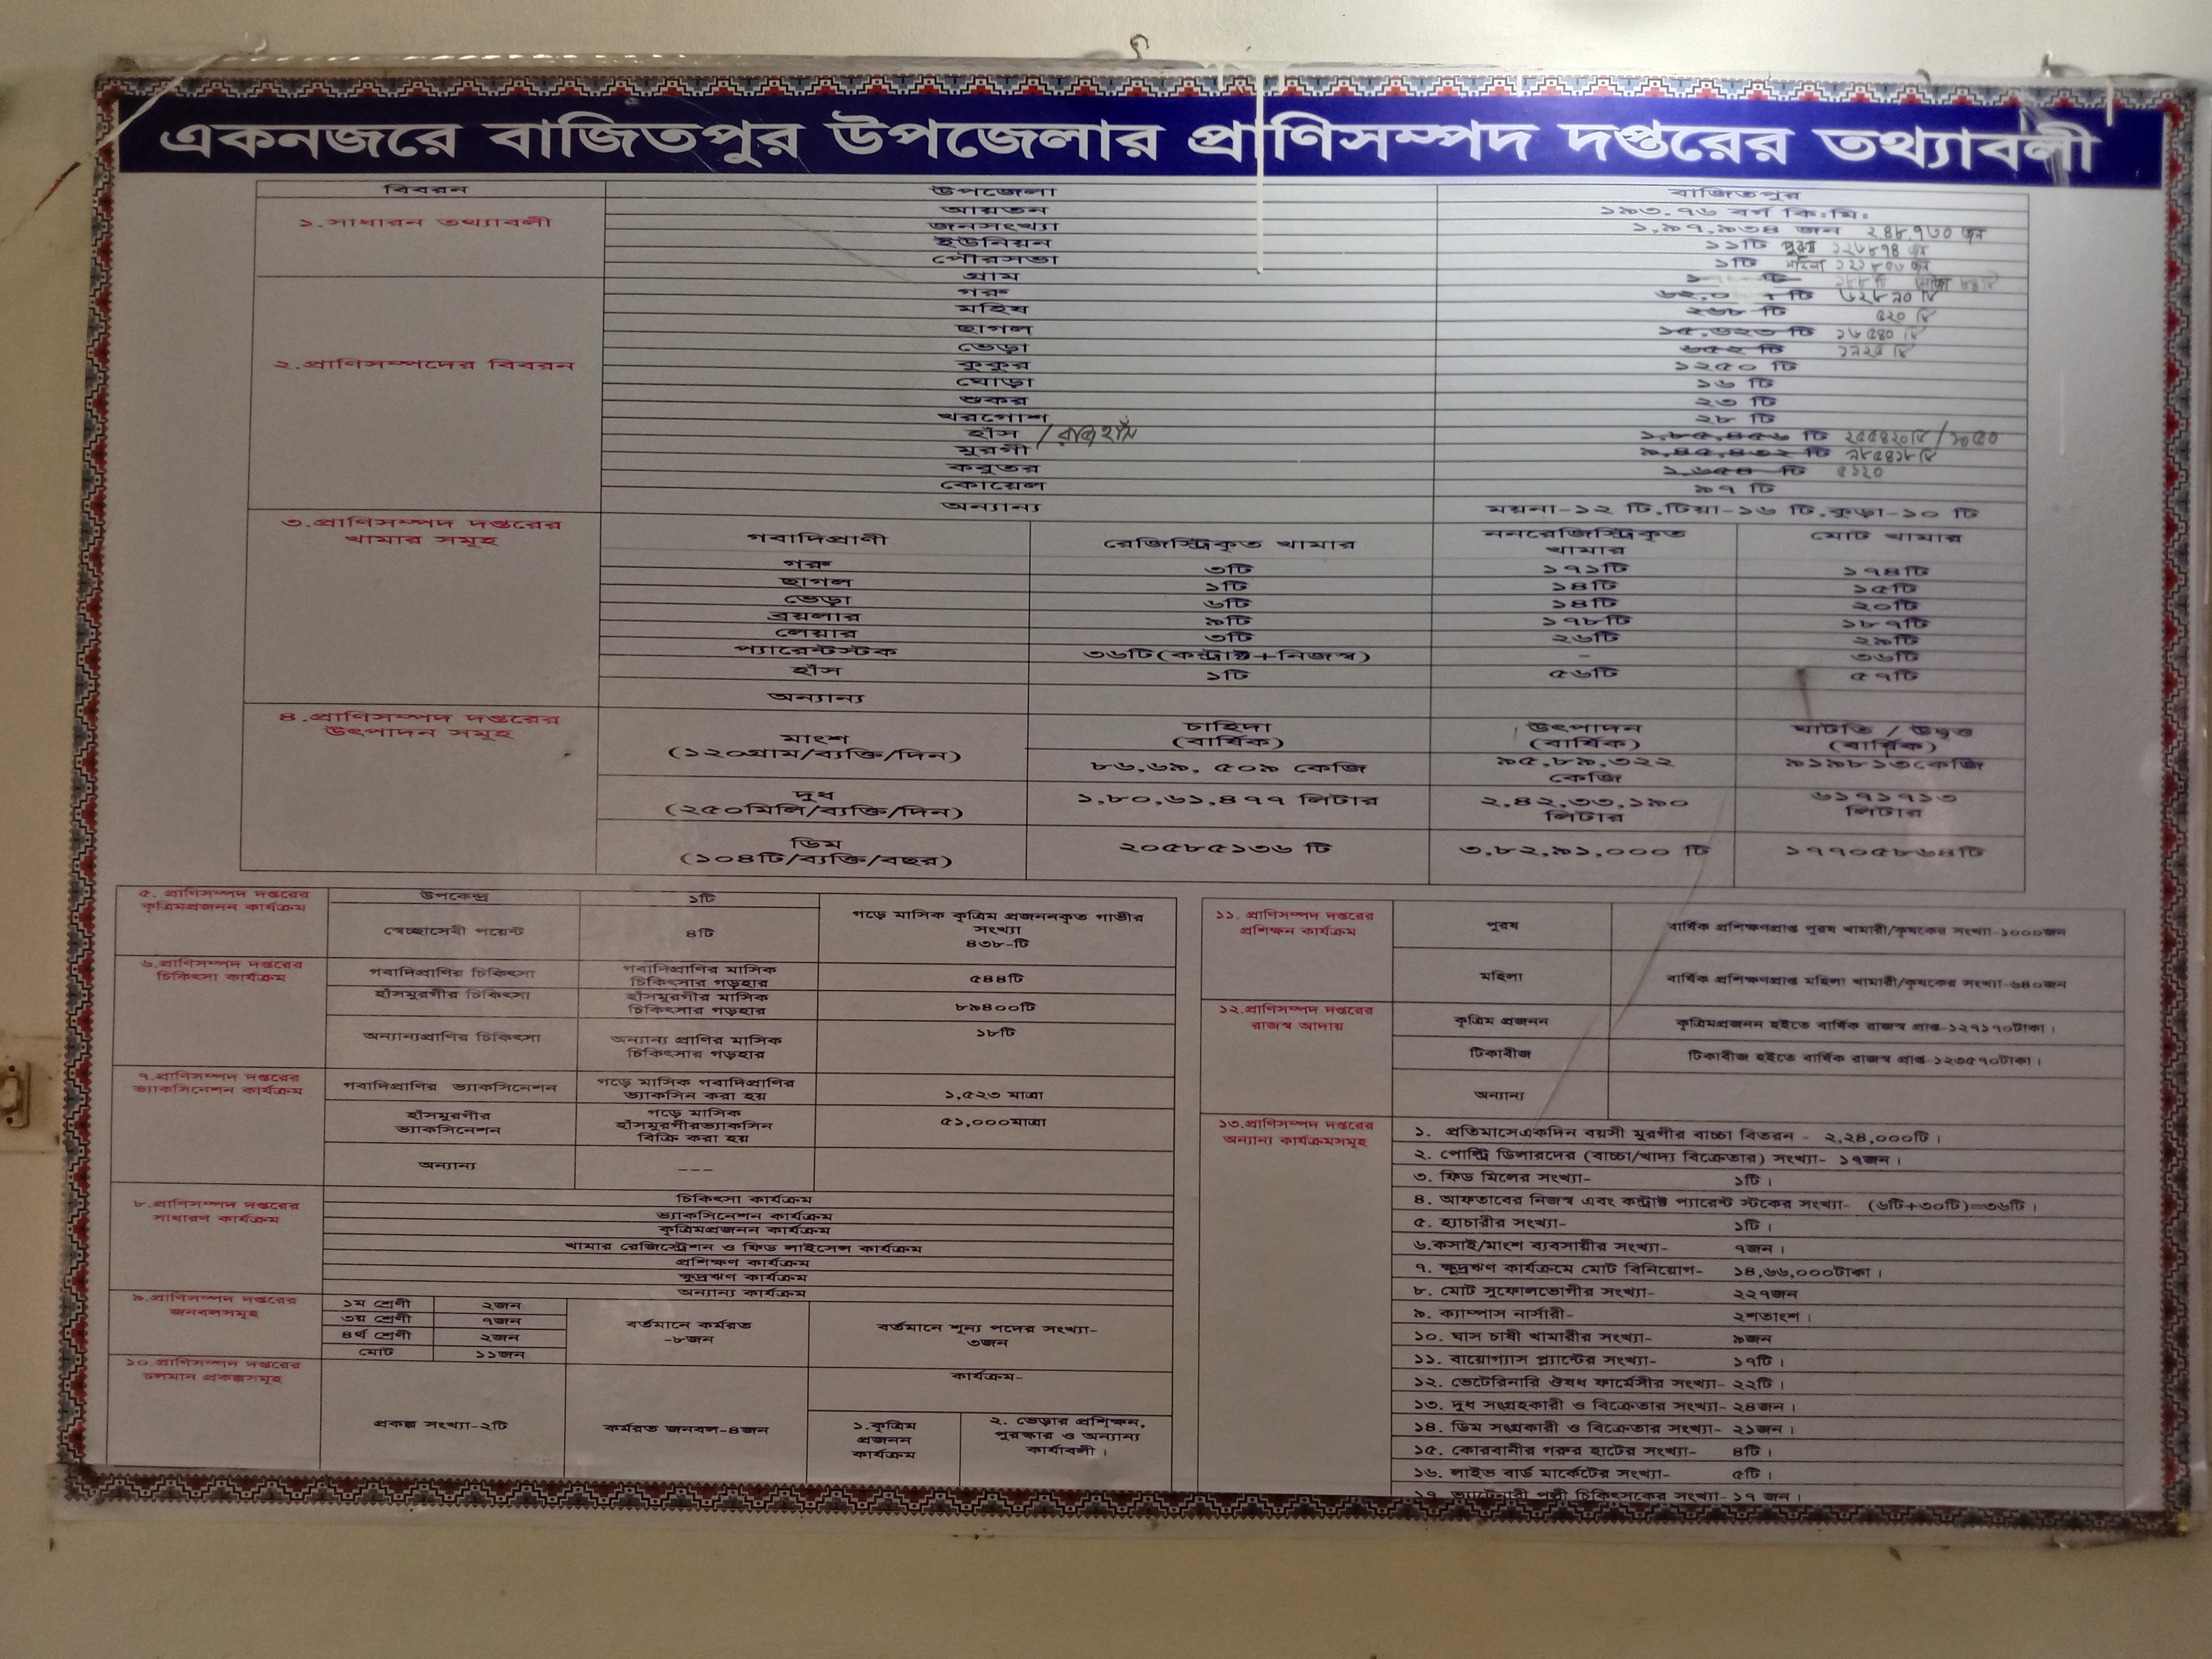 একনজরে বাজিতপুর উপজেলার প্রাণিসম্পদ দপ্তরের তথ্যাবলী
বিবরন উপজেলা বাজিতপুর
১.সাধারন তথ্যাবলী
আয়তন ১৯৩.৭৬ বর্গ কি:মি:
জনসংখ্যা ১,৯৭,৯৩৪ জন ২৪৮,৭৩০ জন
ইউনিয়ন ১১টি পুরুষ ১২৬৮৭৪ জন
পৌরসভা ১টি মহিলা ১২১৮৫৬ জন
গ্রাম
২.প্রাণিসম্পদের বিবরন
গরু ৬২৮৯০ টি
মহিষ ২৬৮ টি ৫২০ টি
ছাগল ১৫,৬২৩ টি ১৬৫৪০ টি
ভেড়া ৬৫২ টি ১৭২৫ টি
কুকুর ১২৫০ টি
ঘোড়া ১৬ টি
শুকর ২৩ টি
খরগোশ ২৮ টি
হাঁস / রাজহাঁস ১,৮৫,৪৫৬ টি ২৫৫৪২০টি/
মুরগী ৯,৪৫,৪৩২ টি
কবুতর ১,৬৫৪ টি ৫১২০
কোয়েল ৯৭ টি
অন্যান্য ময়না-১২ টি,টিয়া-১৬ টি,কুড়া-১০ টি
৩.প্রাণিসম্পদ দপ্তরের
খামার সমূহ
গবাদিপ্রাণী রেজিস্ট্রিকৃত খামার ননরেজিস্ট্রিকৃত খামার মোট খামার
গরু ৩টি ১৭১টি ১৭৪টি
ছাগল ১টি ১৪টি ১৫টি
ভেড়া ৬টি ১৪টি ২০টি
ব্রয়লার ৯টি ১৭৮টি ১৮৭টি
লেয়ার ৩টি ২৬টি ২৯টি
প্যারেন্টস্টক ৩৬টি(কন্ট্রাক্ট+নিজস্ব) – ৩৬টি
হাঁস ১টি ৫৬টি ৫৭টি
অন্যান্য
৪.প্রাণিসম্পদ দপ্তরের
উৎপাদন সমূহ
চাহিদা (বার্ষিক) উৎপাদন (বার্ষিক) ঘাটতি / উদ্বৃত্ত (বার্ষিক)
মাংশ
(১২০গ্রাম/ব্যক্তি/দিন) ৮৬,৬৯, ৫০৯ কেজি ৯৫,৮৯,৩২২ কেজি ৯১৯৮১৩কেজি
দুধ
(২৫০মিলি/ব্যক্তি/দিন) ১,৮০,৬১,৪৭৭ লিটার ২,৪২,৩৩,১৯০ লিটার ৬১৭১৭১৩ লিটার
ডিম
(১০৪টি/ব্যক্তি/বছর) ২০৫৮৫১৩৬ টি ৩,৮২,৯১,০০০ টি ১৭৭০৫৮৬৪টি
৫. প্রাণিসম্পদ দপ্তরের
কৃত্রিমপ্রজনন কার্যক্রম
উপকেন্দ্র ১টি
স্বেচ্ছাসেবী পয়েন্ট ৪টি
গড়ে মাসিক কৃত্রিম প্রজননকৃত গাভীর
সংখ্যা
৪৩৮-টি
৬.প্রাণিসম্পদ দপ্তরের
চিকিৎসা কার্যক্রম
গবাদিপ্রাণির চিকিৎসা গবাদিপ্রাণির মাসিক চিকিৎসার গড়হার ৫৪৪টি
হাঁসমুরগীর চিকিৎসা হাঁসমুরগীর মাসিক চিকিৎসার গড়হার ৮৯৪০০টি
অন্যান্যপ্রাণির চিকিৎসা অন্যান্য প্রাণির মাসিক চিকিৎসার গড়হার ১৮টি
৭.প্রাণিসম্পদ দপ্তরের
ভ্যাকসিনেশন কার্যক্রম
গবাদিপ্রাণির ভ্যাকসিনেশন গড়ে মাসিক গবাদিপ্রাণির ভ্যাকসিন করা হয় ১,৫২৩ মাত্রা
হাঁসমুরগীর ভ্যাকসিনেশন গড়ে মাসিক হাঁসমুরগীরভ্যাকসিন বিক্রি করা হয় ৫১,০০০মাত্রা
অন্যান্য ---
৮.প্রাণিসম্পদ দপ্তরের
সাধারণ কার্যক্রম
চিকিৎসা কার্যক্রম
ভ্যাকসিনেশন কার্যক্রম
কৃত্রিমপ্রজনন কার্যক্রম
খামার রেজিস্ট্রেশন ও ফিড লাইসেন্স কার্যক্রম
প্রশিক্ষণ কার্যক্রম
ক্ষুদ্রঋণ কার্যক্রম
অন্যান্য কার্যক্রম
৯.প্রাণিসম্পদ দপ্তরের
জনবলসমূহ
১ম শ্রেণী ২জন
৩য় শ্রেণী ৭জন
৪র্থ শ্রেণী ২জন
মোট ১১জন
বর্তমানে কর্মরত
-৮জন
বর্তমানে শূন্য পদের সংখ্যা-
৩জন
১০.প্রাণিসম্পদ দপ্তরের
চলমান প্রকল্পসমূহ
প্রকল্প সংখ্যা-২টি
কর্মরত জনবল-৪জন
কার্যক্রম-
১.কৃত্রিম
প্রজনন
কার্যক্রম
২. ভেড়ার প্রশিক্ষন,
পুরস্কার ও অন্যান্য
কার্যাবলী।
১১. প্রাণিসম্পদ দপ্তরের
প্রশিক্ষন কার্যক্রম
পুরুষ বার্ষিক প্রশিক্ষণপ্রাপ্ত পুরুষ খামারী/কৃষকের সংখ্যা-১০০০জন
মহিলা বার্ষিক প্রশিক্ষণপ্রাপ্ত মহিলা খামারী/কৃষকের সংখ্যা-৬৪০জন
১২.প্রাণিসম্পদ দপ্তরের
রাজস্ব আদায়
কৃত্রিম প্রজনন কৃত্রিমপ্রজনন হইতে বার্ষিক রাজস্ব প্রাপ্ত-১২৭১৭০টাকা।
টিকাবীজ টিকাবীজ হইতে বার্ষিক রাজস্ব প্রাপ্ত-১২৩৫৭০টাকা।
অন্যান্য
১৩.প্রাণিসম্পদ দপ্তরের
অন্যান্য কার্যক্রমসমূহ
১. প্রতিমাসেএকদিন বয়সী মুরগীর বাচ্চা বিতরন - ২,২৪,০০০টি।
২. পোল্ট্রি ডিলারদের (বাচ্চা/খাদ্য বিক্রেতার) সংখ্যা- ১৭জন।
৩. ফিড মিলের সংখ্যা- ১টি।
৪. আফতাবের নিজস্ব এবং কন্ট্রাক্ট প্যারেন্ট স্টকের সংখ্যা- (৬টি+৩০টি)=৩৬টি।
৫. হ্যাচারীর সংখ্যা- ১টি।
৬.কসাই/মাংশ ব্যবসায়ীর সংখ্যা- ৭জন।
৭. ক্ষুদ্রঋণ কার্যক্রমে মোট বিনিয়োগ- ১৪,৬৬,০০০টাকা।
৮. মোট সুফোলভোগীর সংখ্যা- ২২৭জন
৯. ক্যাম্পাস নার্সারী- ২শতাংশ।
১০. ঘাস চাষী খামারীর সংখ্যা- ৯জন
১১. বায়োগ্যাস প্ল্যান্টের সংখ্যা- ১৭টি।
১২. ভেটেরিনারি ঔষধ ফার্মেসীর সংখ্যা- ২২টি।
১৩. দুধ সংগ্রহকারী ও বিক্রেতার সংখ্যা- ২৪জন।
১৪. ডিম সংগ্রকারী ও বিক্রেতার সংখ্যা- ২১জন।
১৫. কোরবানীর গরুর হাটের সংখ্যা- ৪টি।
১৬. লাইভ বার্ড মার্কেটের সংখ্যা- ৫টি।
১৭. ভ্যাটেনারী পল্লী চিকিৎসকের সংখ্যা- ১৭ জন।